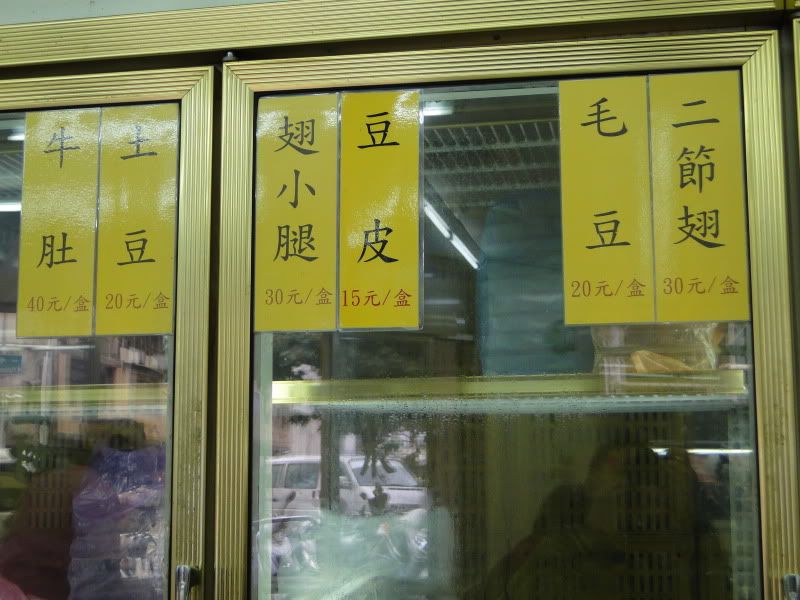 牛肚
40元/盒
土豆
20元/盒
翅小腿
30元/盒
豆皮
15元/盒
毛豆
20元/盒
二節翅
30元/盒